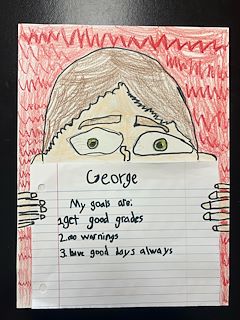 George
My goals are:
1.get good grades
2.no warnings
3.have good days always